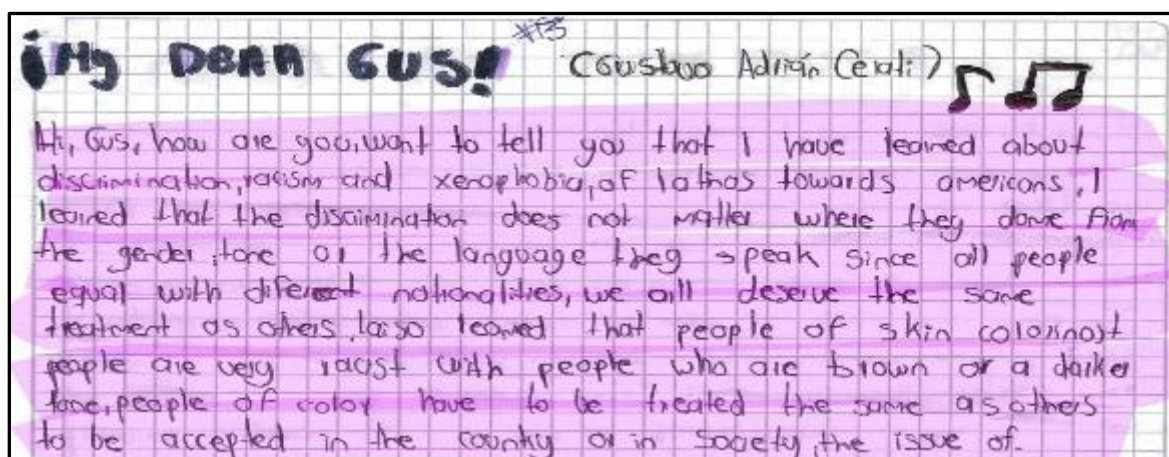 #13
¡My DEAR GUS! (Gustavo Adrián Cerati)
Hi, Gus, how are you, want to tell you that I have learned about
discrimination, racism and xenophobia, of latinos towards americans, I
learned that the discrimination does not matter where they come from
the gender, tone or the language they speak since all people
equal with diferent nationalities, we all deserve the same
treatment as others, I also learned that people of skin color, most
people are very racist with people who are brown or a darker
tone, people of color have to be treated the same as others
to be accepted in the country or in society, the issue of